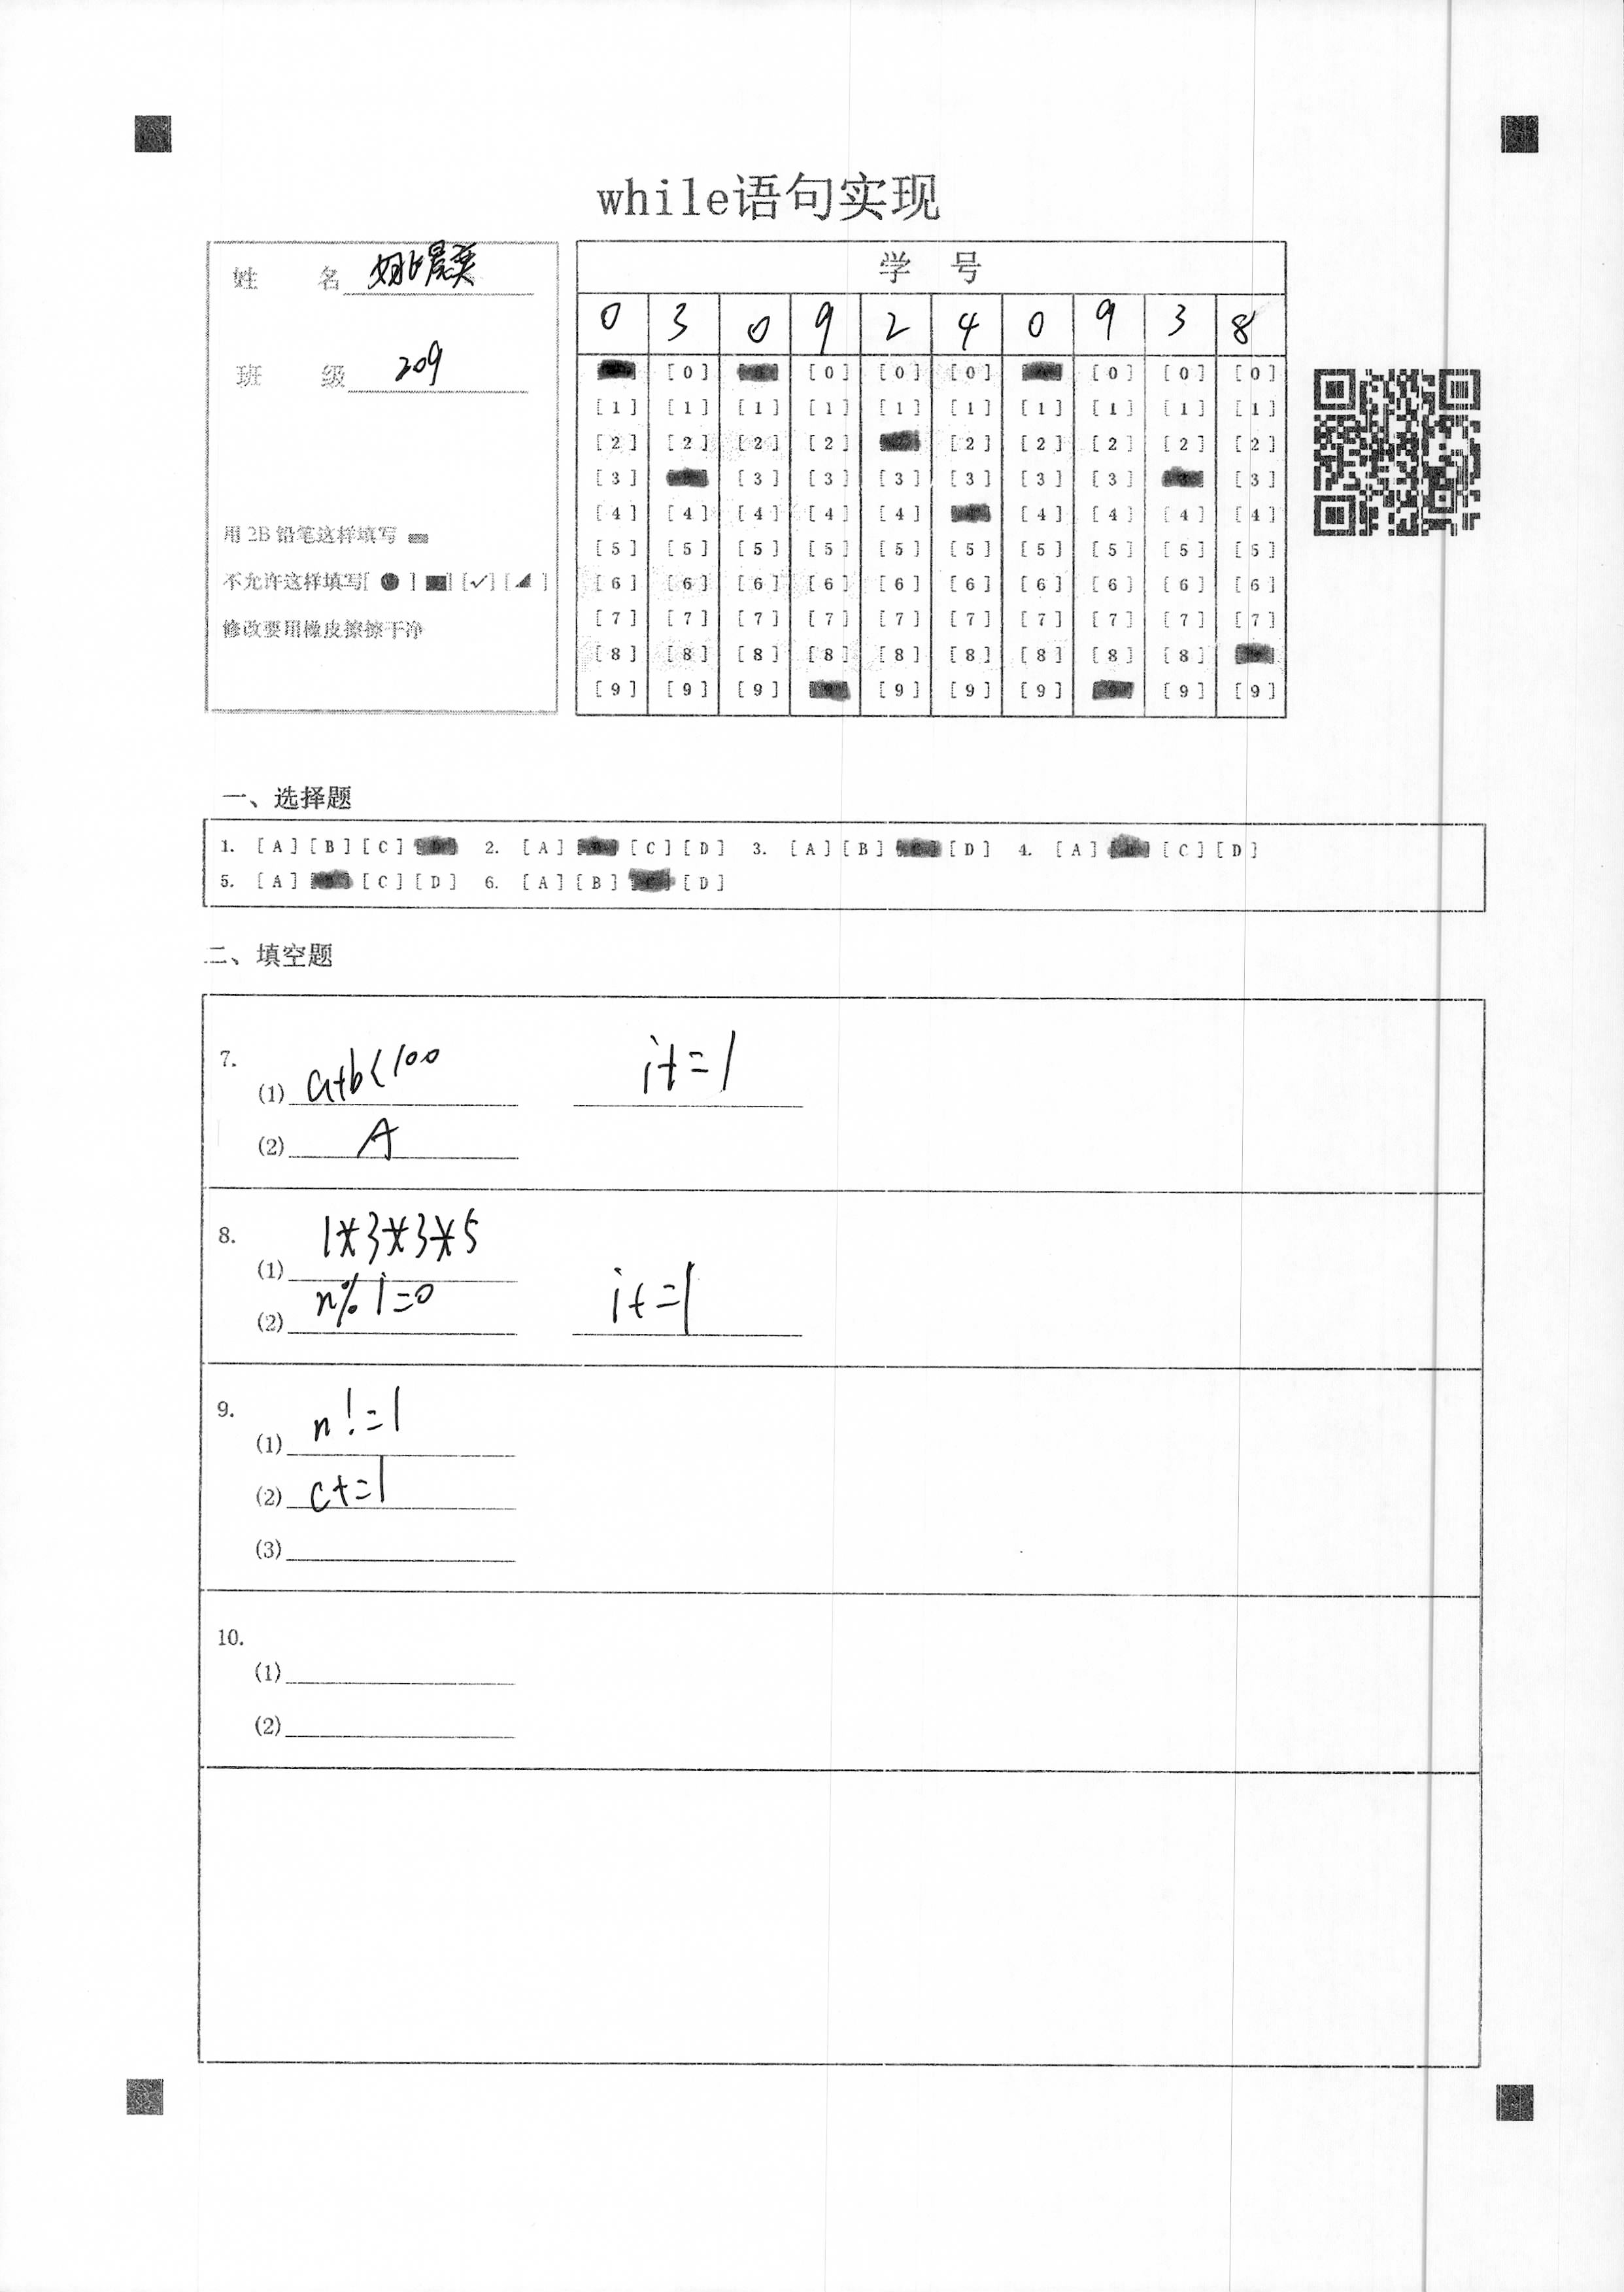 while语句实现
姓 名 姚晨奕
班 级 209
用 2B 铅笔这样填写
不允许这样填写[ ● ] [■] [✓] [◢]
修改要用橡皮擦擦干净
学 号
0 3 0 9 2 4 0 9 3 8
[0] [0] [0] [0] [0] [0] [0]
[1] [1] [1] [1] [1] [1] [1] [1] [1] [1]
[2] [2] [2] [2] [2] [2] [2] [2] [2]
[3] [3] [3] [3] [3] [3] [3] [3]
[4] [4] [4] [4] [4] [4] [4] [4] [4]
[5] [5] [5] [5] [5] [5] [5] [5] [5] [5]
[6] [6] [6] [6] [6] [6] [6] [6] [6] [6]
[7] [7] [7] [7] [7] [7] [7] [7] [7] [7]
[8] [8] [8] [8] [8] [8] [8] [8] [8]
[9] [9] [9] [9] [9] [9] [9] [9]
一、选择题
1. [A] [B] [C] 2. [A] [C] [D] 3. [A] [B] [D] 4. [A] [C] [D]
5. [A] [C] [D] 6. [A] [B] [D]
二、填空题
7.
(1) a+b<100 i+=1
(2) A
8.
(1) 1*3*3*5
(2) n%i=0 i+=1
9.
(1) n!=1
(2) c+=1
(3)
10.
(1)
(2)